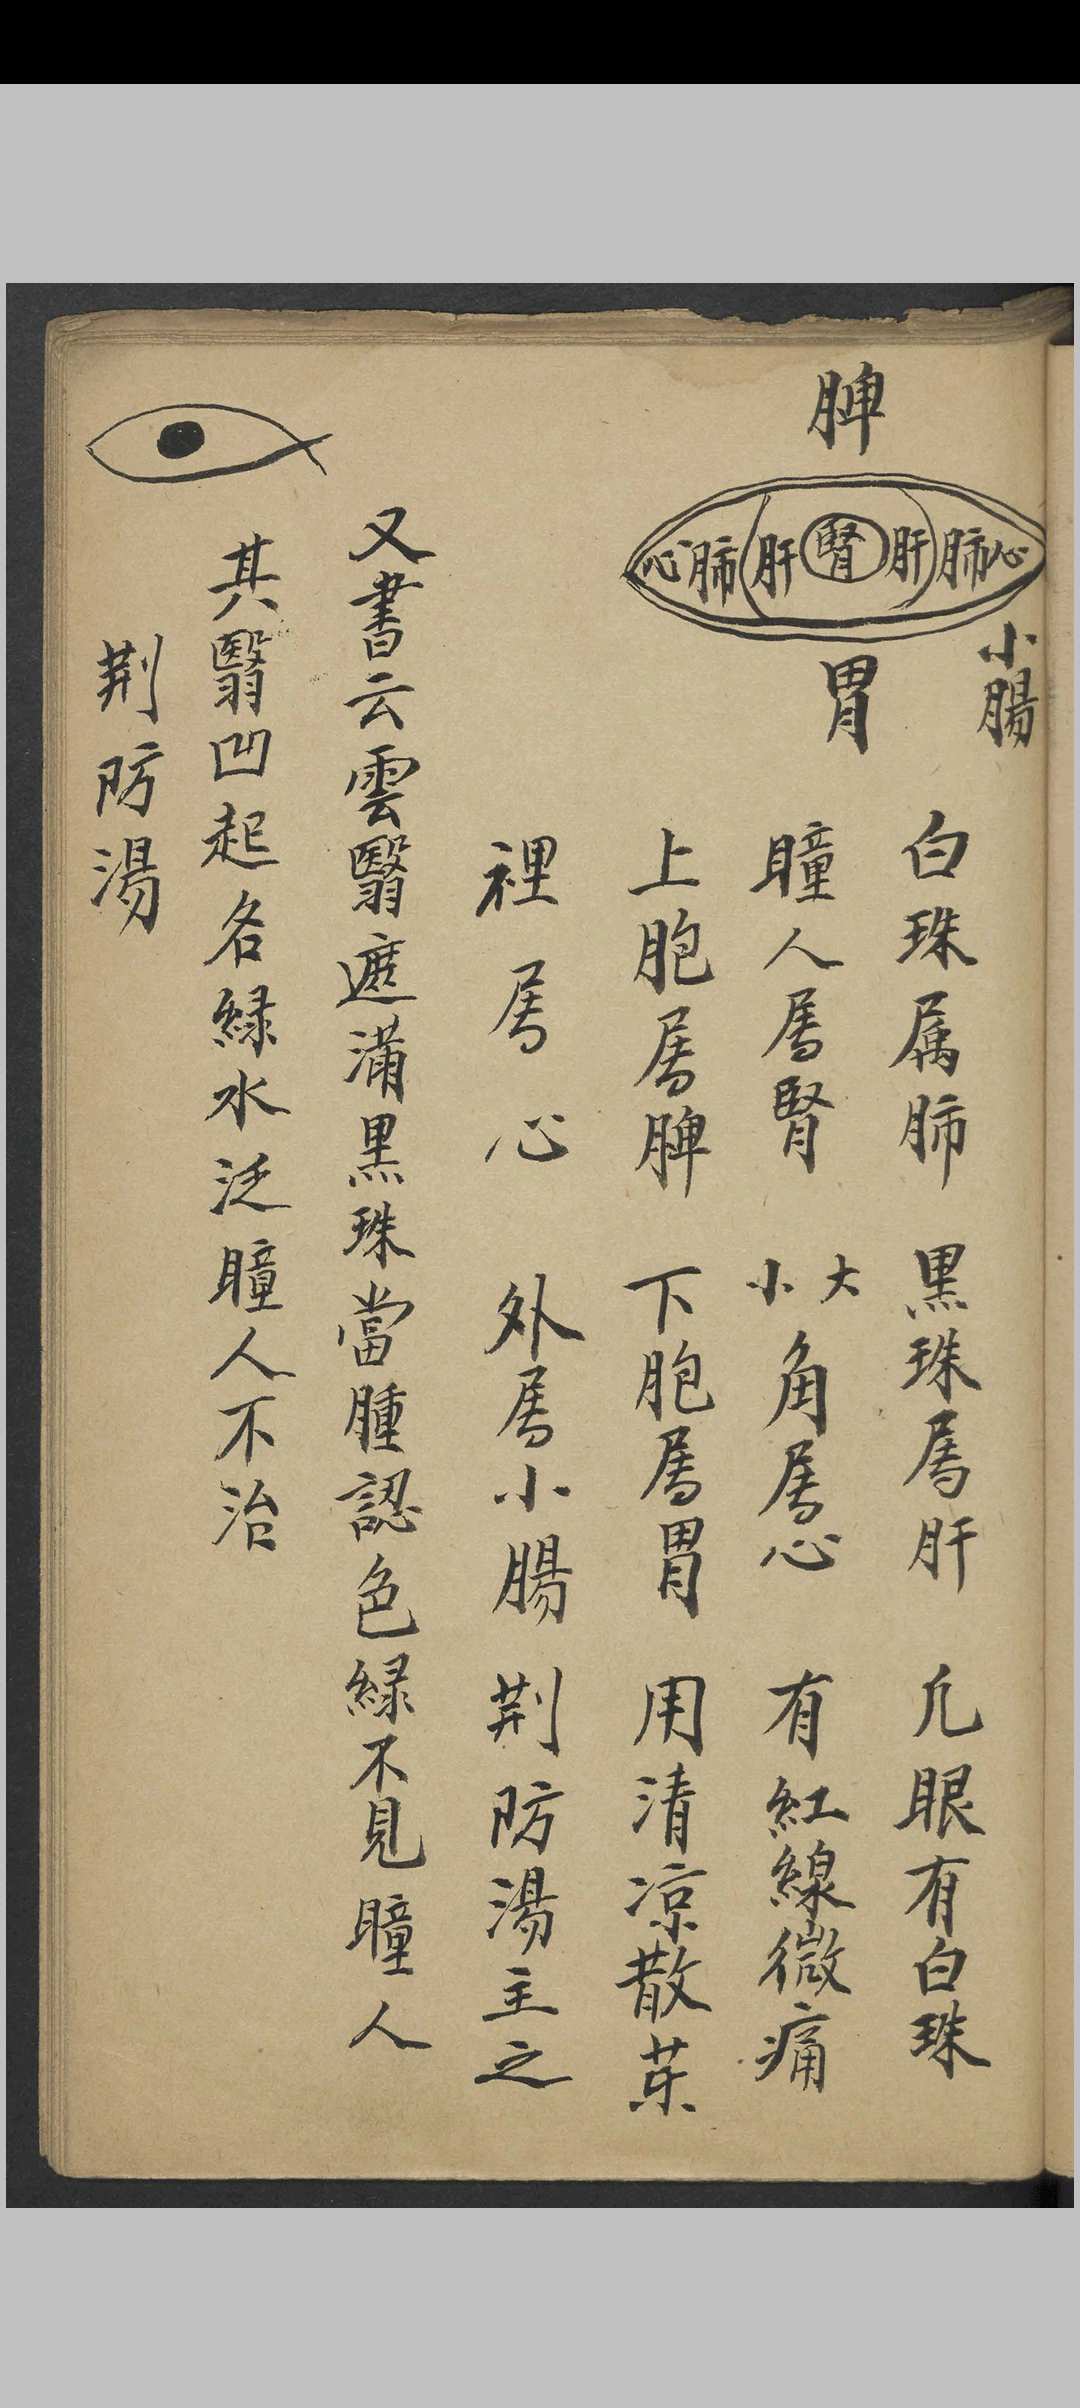 脾
心肺肝腎肝肺心
小腸
胃
白珠属肺 黑珠属肝 凡眼有白珠
瞳人属腎 大小角属心 有紅線微痛
上胞属脾 下胞属胃 用清凉散
裡属心 外属小腸 荆防湯主之
又書云雲翳遮滿黑珠當腫認色緑不見瞳人
其翳凹起各緑水泛瞳人不治
荆防湯